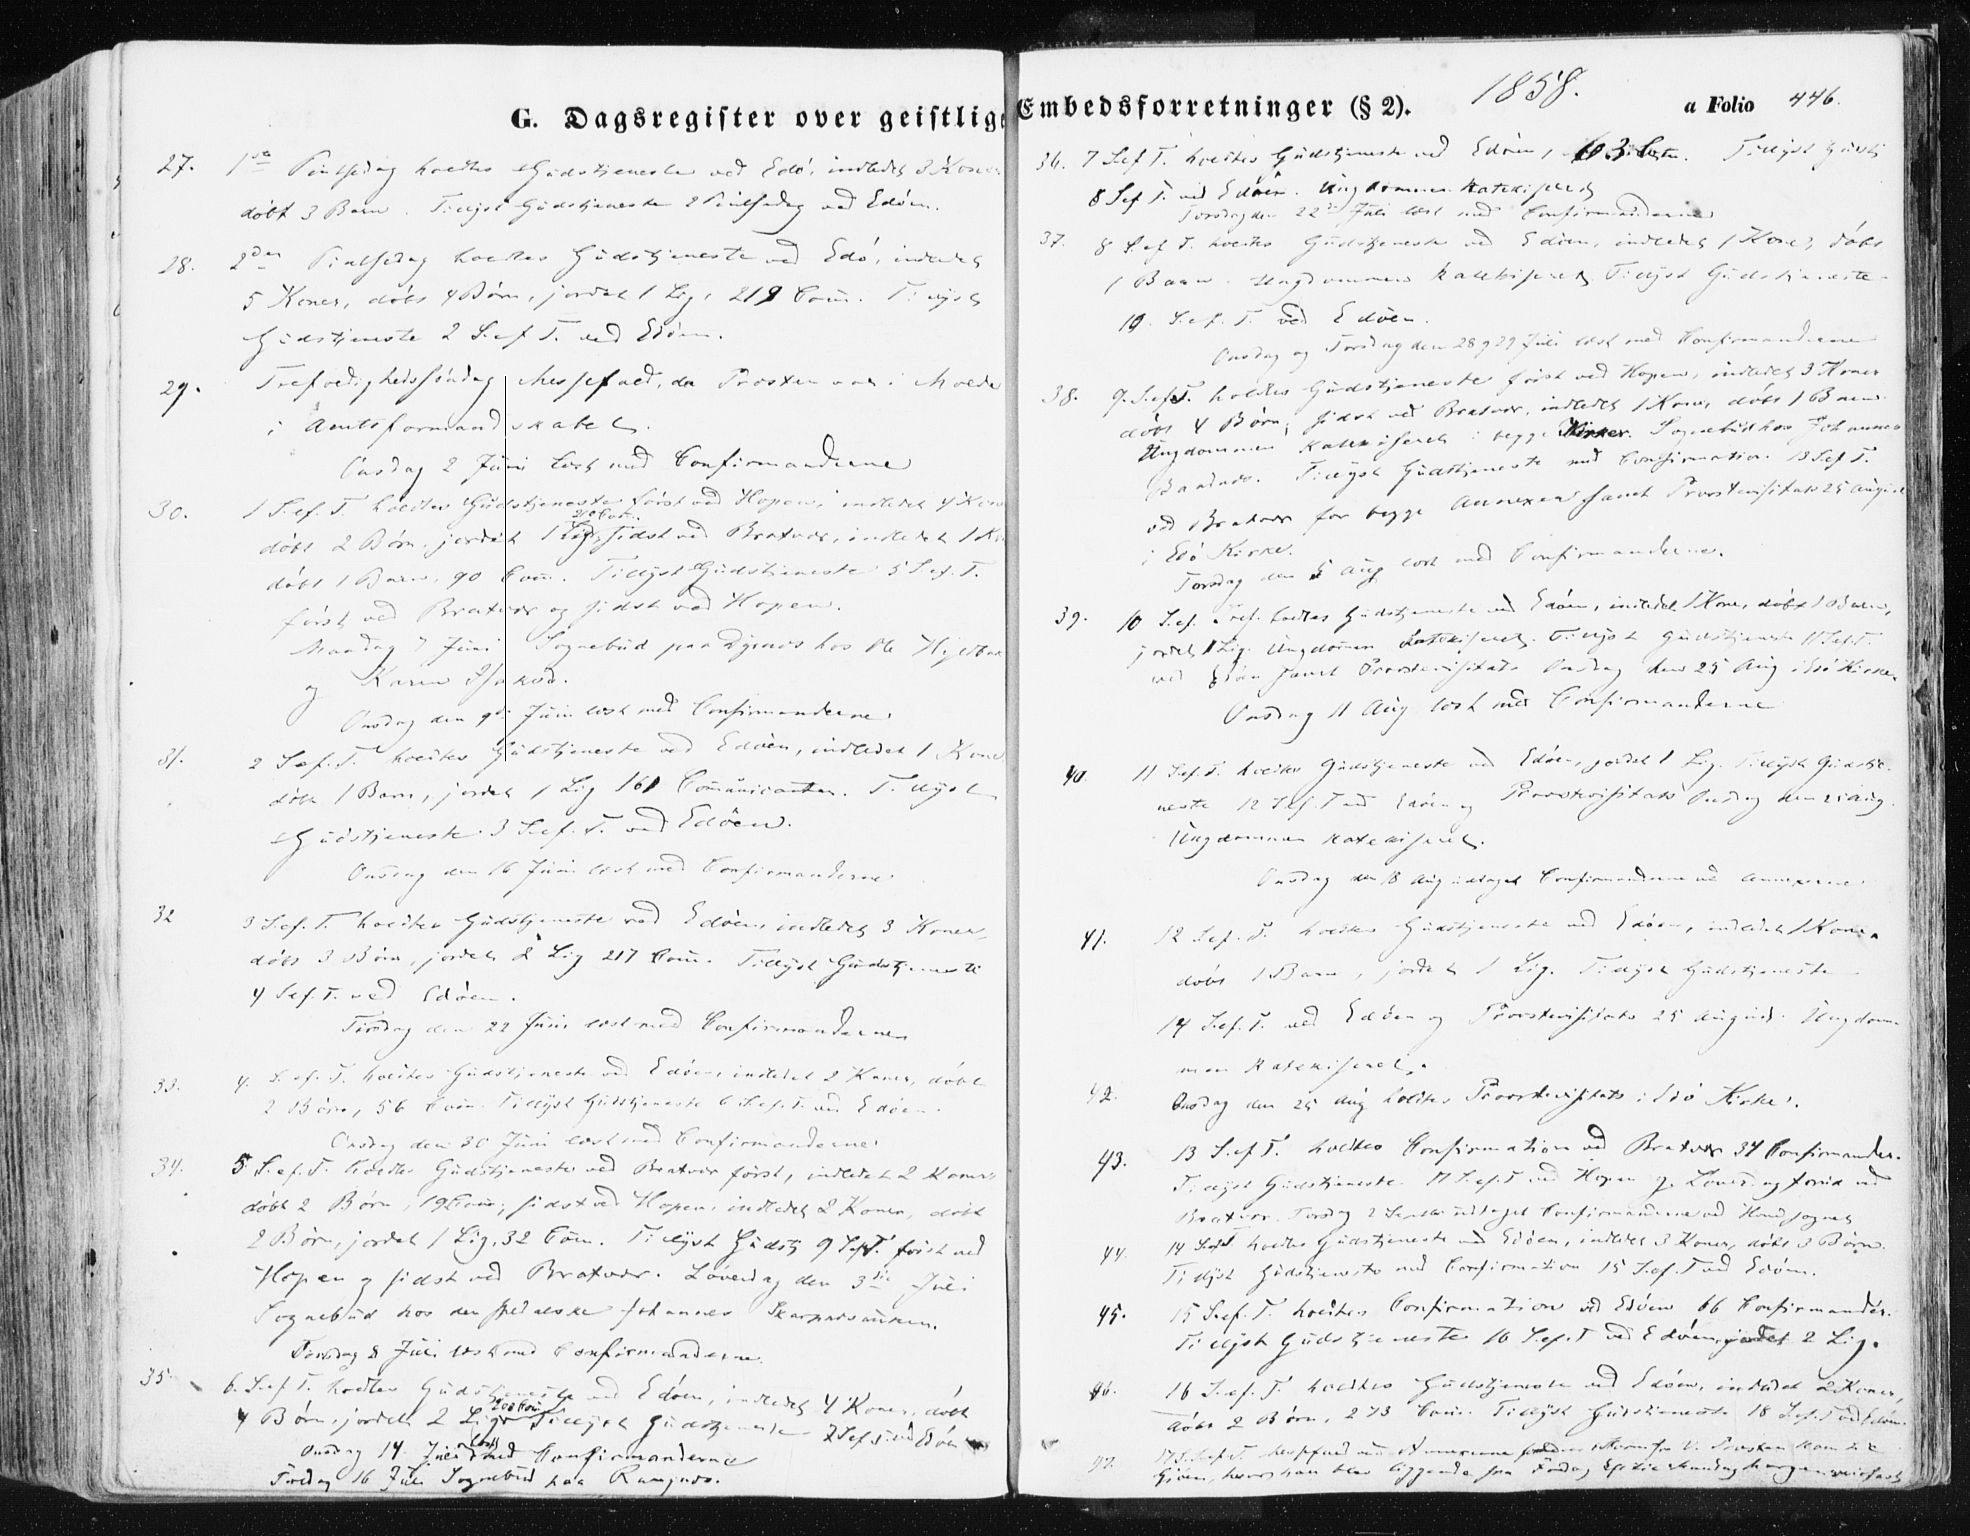 G. Dagsregister over geistlige Embedsforretninger (§ 2). 1858. a Folio 446.
27. 1ste Pintsedag holdtes Gudstjeneste ved Edö, indledet 3 Koner
döbt 3 Børn. Tillyst Gudstjeneste 2 Pintsedag ved Edöen.
28. 2den Pintsedag holdtes Gudstjeneste ved Edö, indledet
5 Koner, döbt 4 Børn, jordet 1 Lig, 219 Com. Tillyst
Gudstjeneste 2 S. ef T. ved Edöen.
29. Trefoldighedssöndag Messefald, da Provsten var i Molde
i Amtsformandskabet.
Onsdag 2 Juni læst med Confirmanderne
30. 1 S. ef. T holdtes Gudstjeneste först ved Hopen, indledet 4 Kon
döbt 2 Börn, jordet 1 Lig, sidst ved Bratvær, indledet 1 Ko
döbt 1 Barn, 90 Com. Tillyst Gudstjeneste 5 S. ef. T.
först ved Bratvær og sidst ved Hopen.
Mandag 7 Juni Sognebud paa hos
og Karen
Onsdag den 9de Juni læst med Confirmanderne
31. 2 S. ef. T. holdtes Gudstjeneste ved Edöen, indledet 1 Kone
döbt 1 Barn, jordet 1 Lig 161 Communicanter. Tillyst
Gudstjeneste 3 S. ef. T. ved Edöen.
Onsdag den 16 Juni læst med Confirmanderne
32 3 S. ef. T. holdtes Gudstjeneste ved Edöen, indledet 3 Koner,
döbt 3 Börn, jordet 2 Lig 217 Com. Tillyst Gudstjeneste
4 S. ef. T. ved Edöen.
Tirsdag den 22 Juni læst med Confirmanderne
33. 4. S. ef. T. holdtes Gudstjeneste ved Edöen, indledet 2 Koner, döbt
2 Börn, 56 Com. Tillyst Gudstjeneste 6 S. ef. T. ved Edöen.
Onsdag den 30 Juni læst med Confirmanderne
34. 5 S. ef. T. holdtes Gudstjeneste ved Bratvær först, indledet 2 Koner
döbt 2 Börn, 19 Com; sidst ved Hopen, indledet 2 Koner, döbt
2 Börn, jordet 1 Lig, 32 Com. Tillyst Gudstj 9 S. ef T. först ved
Hopen og sidst ved Bratvær. Löverdag den 3die Juli
Sognebud hos den spedalske Johannes
Torsdag 8 Juli læst med Confirmanderne.
35 6. S. ef T. holdtes Gudstjeneste ved Edöen, indledet 4 Koner, döbt
4 Börn, jordet 2 Lig, 200 Com Tillyst Gudstjeneste 7 S. ef T. ved Edöen
Onsdag 14 Juli læst med Confirmanderne
Fredag 16 Juli Sognebud paa
36. 7 S. ef T. holdtes Gudstjeneste ved Edöen, Tillyst Gudstj
8 S. ef T. ved Edöen. Ungdommen katekiseret
Torsdag den 22de Juli læst med Confirmanderne
37. 8 S. ef T. holdtes Gudstjeneste ved Edöen, indledet 1 Kone, döbt
1 Barn. Ungdommen katekiseret. Tillyst Gudstjeneste
10. S. ef. T. ved Edöen.
Onsdag og Torsdag den 28 og 29 Juli læst med Confirmanderne
38. 9. S. ef T. holdtes Gudstjeneste först ved Hopen, indledet 3 Koner
döbt 4 Börn; sidst ved Bratvær, indledet 1 Kone, döbt 1 Barn
Ungdommen katekiseret i begge Kirker. Sognebud hos Johannes
Tillyst Gudstjeneste med Confirmation 13 S. ef T.
ved Bratvær for begge Annexer samt Provstevisitats 25 August
i Edö Kirke.
Torsdag den 5 Aug læst med Confirmanderne.
39. 10 S. ef. Tref. holdtes Gudstjeneste ved Edöen, indledet 1 Kone, döbt 1 Barn,
jordet 1 Lig. Ungdommen katekiseret. Tillyst Gudstjeneste 11 S. ef T.
ved Edöen samt Provstevisitats Onsdag den 25 Aug i Edö Kirke.
Onsdag 11 Aug læst med Confirmanderne
40. 11 S. ef. T. holdtes Gudstjeneste ved Edöen, jordet 1 Lig. Tillyst Gudstje-
neste 12 S. ef. T ved Edöen og Provstevisitats Onsdag den 25 Aug.
Ungdommen katekiseret.
Onsdag den 18 Aug udtaget Confirmanderne ved Annexerne
41. 12 S. ef. T. holdtes Gudstjeneste ved Edöen, indledet 1 Kone,
döbt 1 Barn, jordet 1 Lig. Tillyst Gudstjeneste
14 S. ef. T. ved Edöen og Provstevisitats 25 August. Ungdom-
men katekiseret.
42. Onsdag den 25 Aug holdtes Provstevisitats i Edö Kirke.
43. 13 S. ef T. holdtes Confirmation ved Bratvær 34 Confirmander.
Tillyst Gudstjeneste 17 S. ef. T ved Hopen og ved
Bratvær. Torsdag 2 Septbr udtaget Confirmanderne ved Hovedsognet
44. 14 S. ef T. holdtes Gudstjeneste ved Edöen, indledet 3 Koner, döbt 3 Börn.
Tillyst Gudstjeneste med Confirmation 15 S. ef. T ved Edöen.
45. 15 S. ef. T. holdtes Confirmation ved Edöen 66 Confirmander.
Tillyst Gudstjeneste 16 S. ef. T ved Edöen, jordet 2 Lig.
46. 16 S. ef. T. holdtes Gudstjeneste ved Edöen, indledet 2 Koner,
döbt 2 Börn, 273 Com. Tillyst Gudstjeneste 18 S. ef. T ved Edöen
47. 17 S. ef T. Messefald ved Annexerne Provsten kom
hvor han blev liggende fra Fredag Mandag Morgen